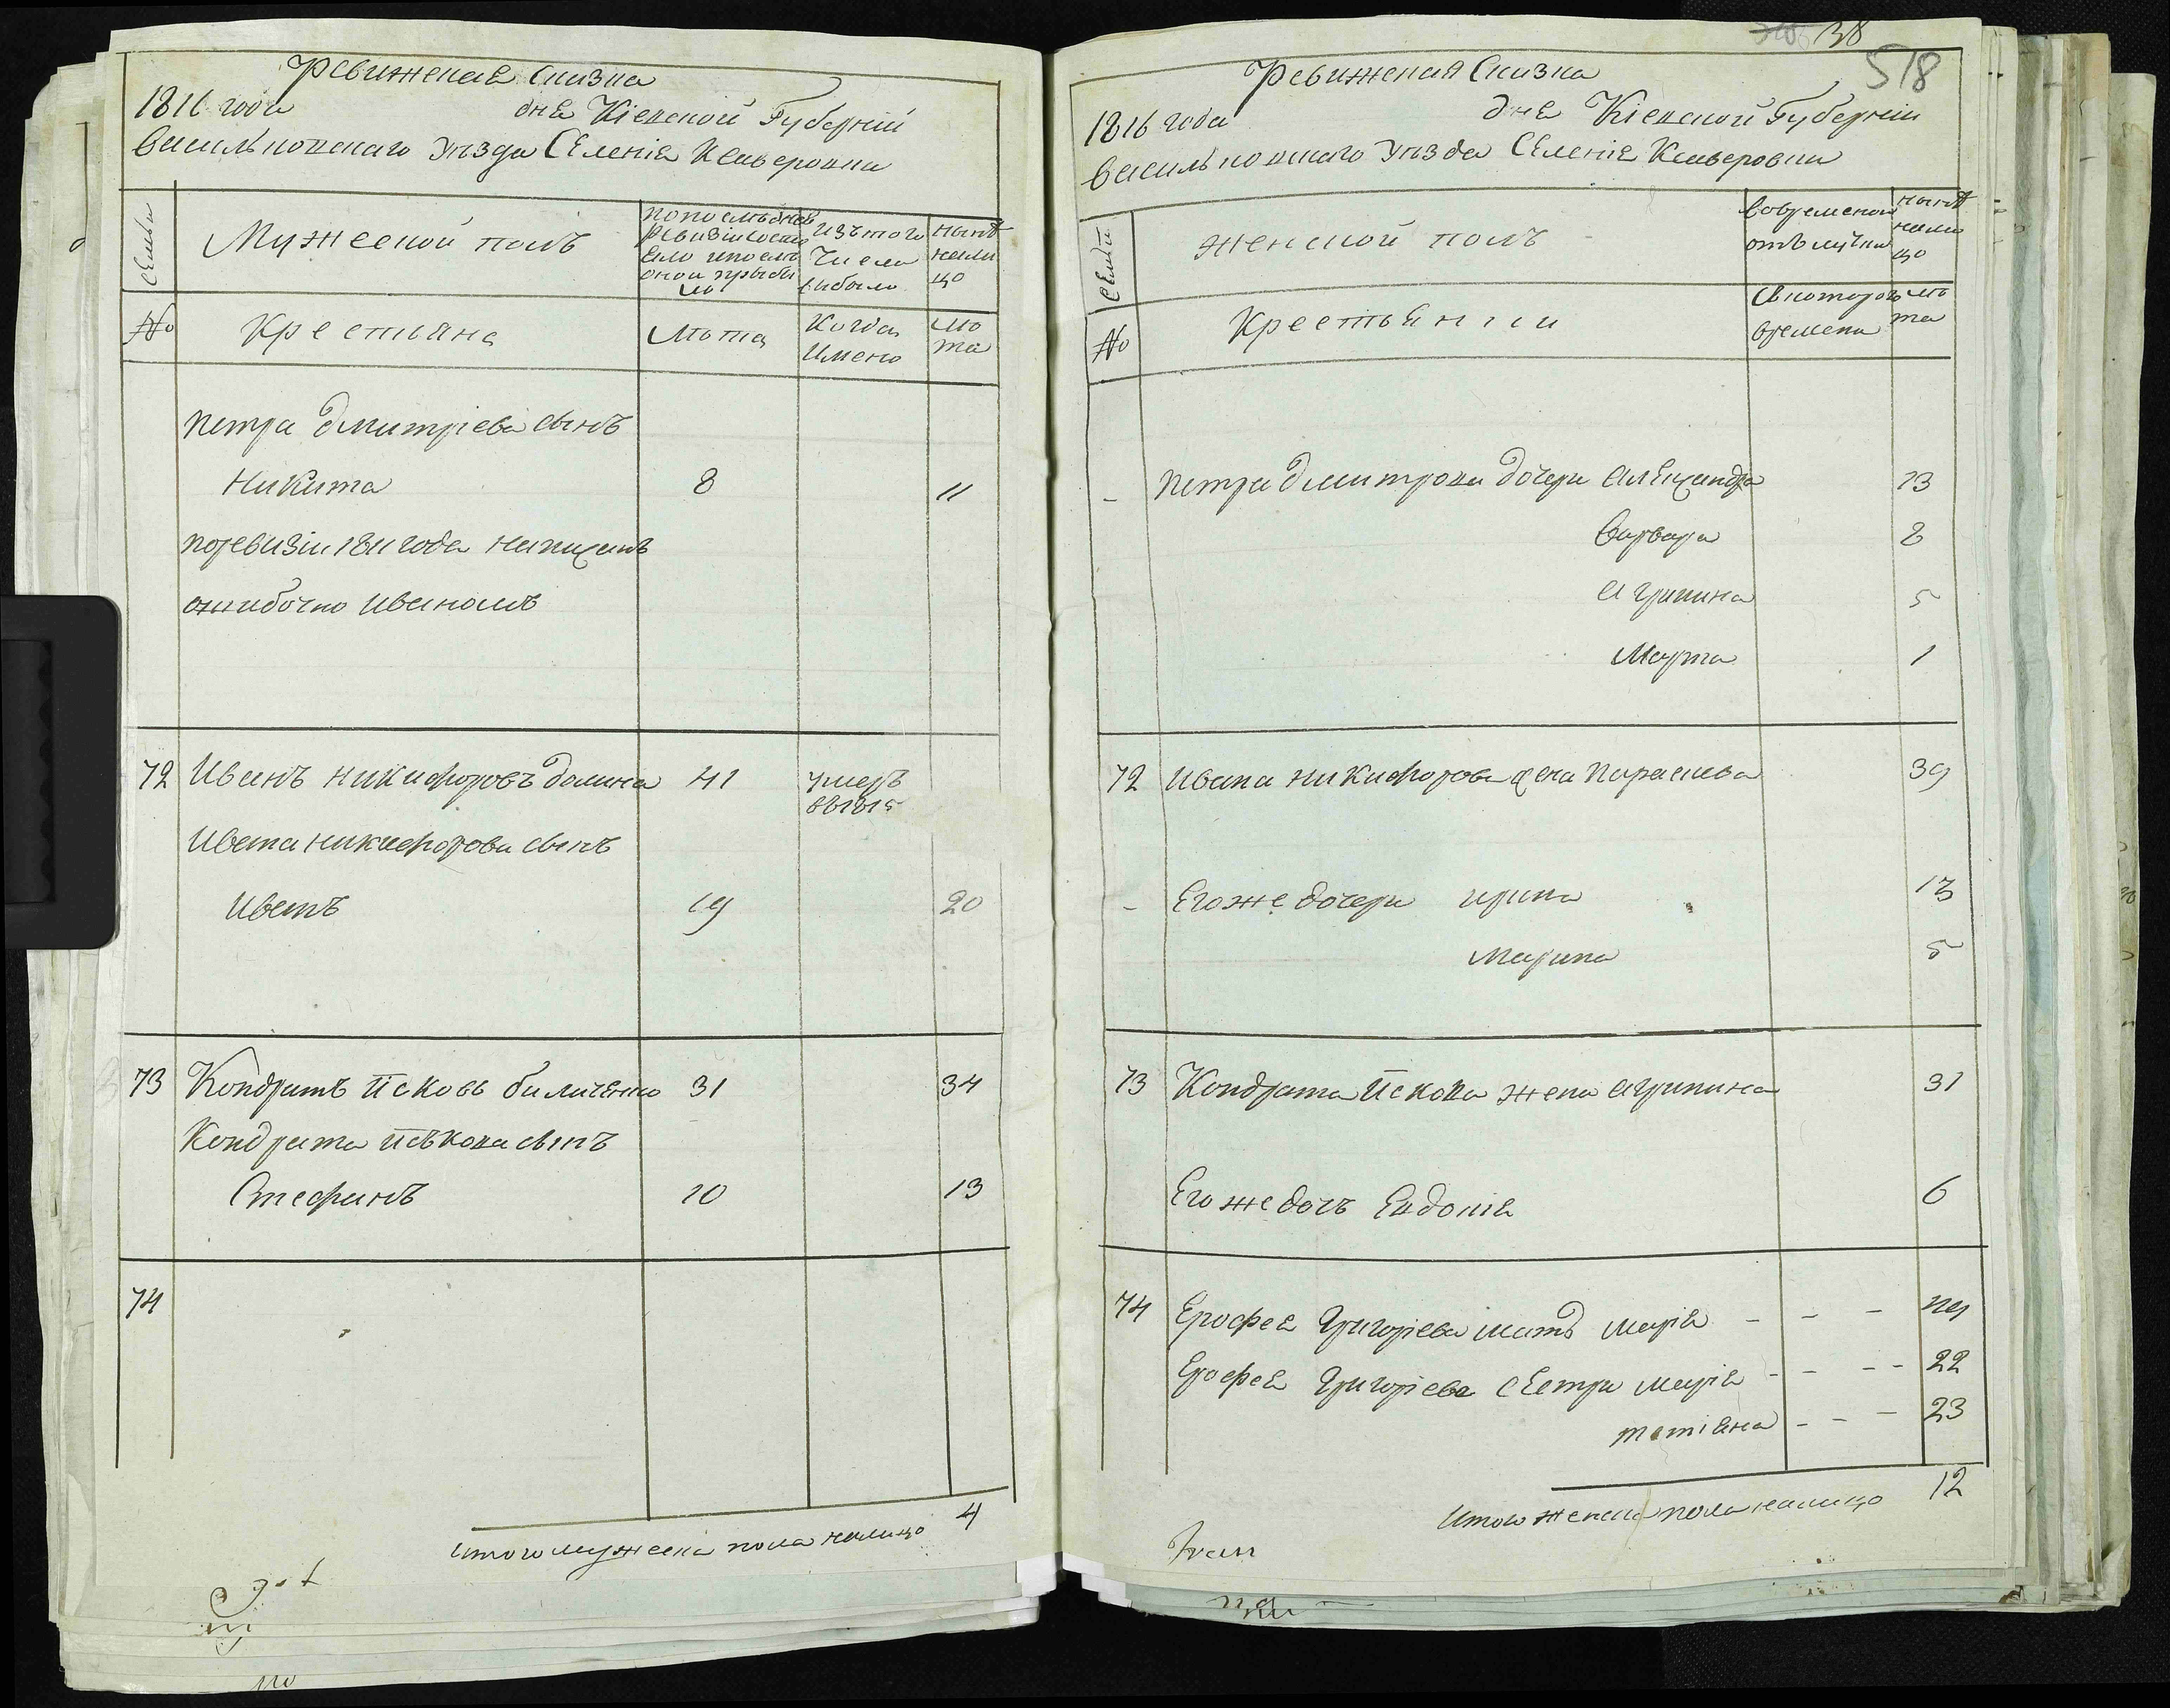 Ревижская Сказка
1816 года дня Кіевской Губерніи
васильковскаго Уѣзда Селенія Ксаверовки
Семьи
Мужеской полъ
попоследней
Ревизіи состо
яло ипосля
оной прибы
ло
Изътого
Числа
выбыло
нынѣ
нали
цо
№
Крестьяна
Лѣта
Когда
Имено
лѣ
та
Петра дмитріева сынъ
Никита 8 11
поревизіи 1811 года написанъ
ошибочно Иваномъ
72 Иванъ никифоровъ долина 41 умеръ
въ1815
Ивана никифорова сынъ
Иванъ 19 20
73 Кондратъ Исковъ биличенко 31 34
Кондрата Исѣкова сынъ
Стефанъ 10 13
74
итого мужеска пола налицо 4
38
518
Ревижская Сказка
1816 года дня Кіевской Губерніи
васильковскаго Уѣзда Селенія Ксаверовки
Семьи
женской полъ
вовременой
отълучки
нынѣ
нали
цо
№
Крестьянки
Скоторого
времени
лѣ
та
- Петра Дмитрова дочери александра 13
варвара 8
агрипина 5
Марта 1
72 Ивана никифорова жена Параскева 39
- Егоже дочери ирина 13
Марина 5
73 Кондрата Искова жена агрипина 31
Егоже дочъ Евдокія 6
74 Ерофея Григоріева мать марія - - -
Ерофея Григоріева сестри марія - - - - 22
татіяна - - - 23
Итого женска пола налицо 12